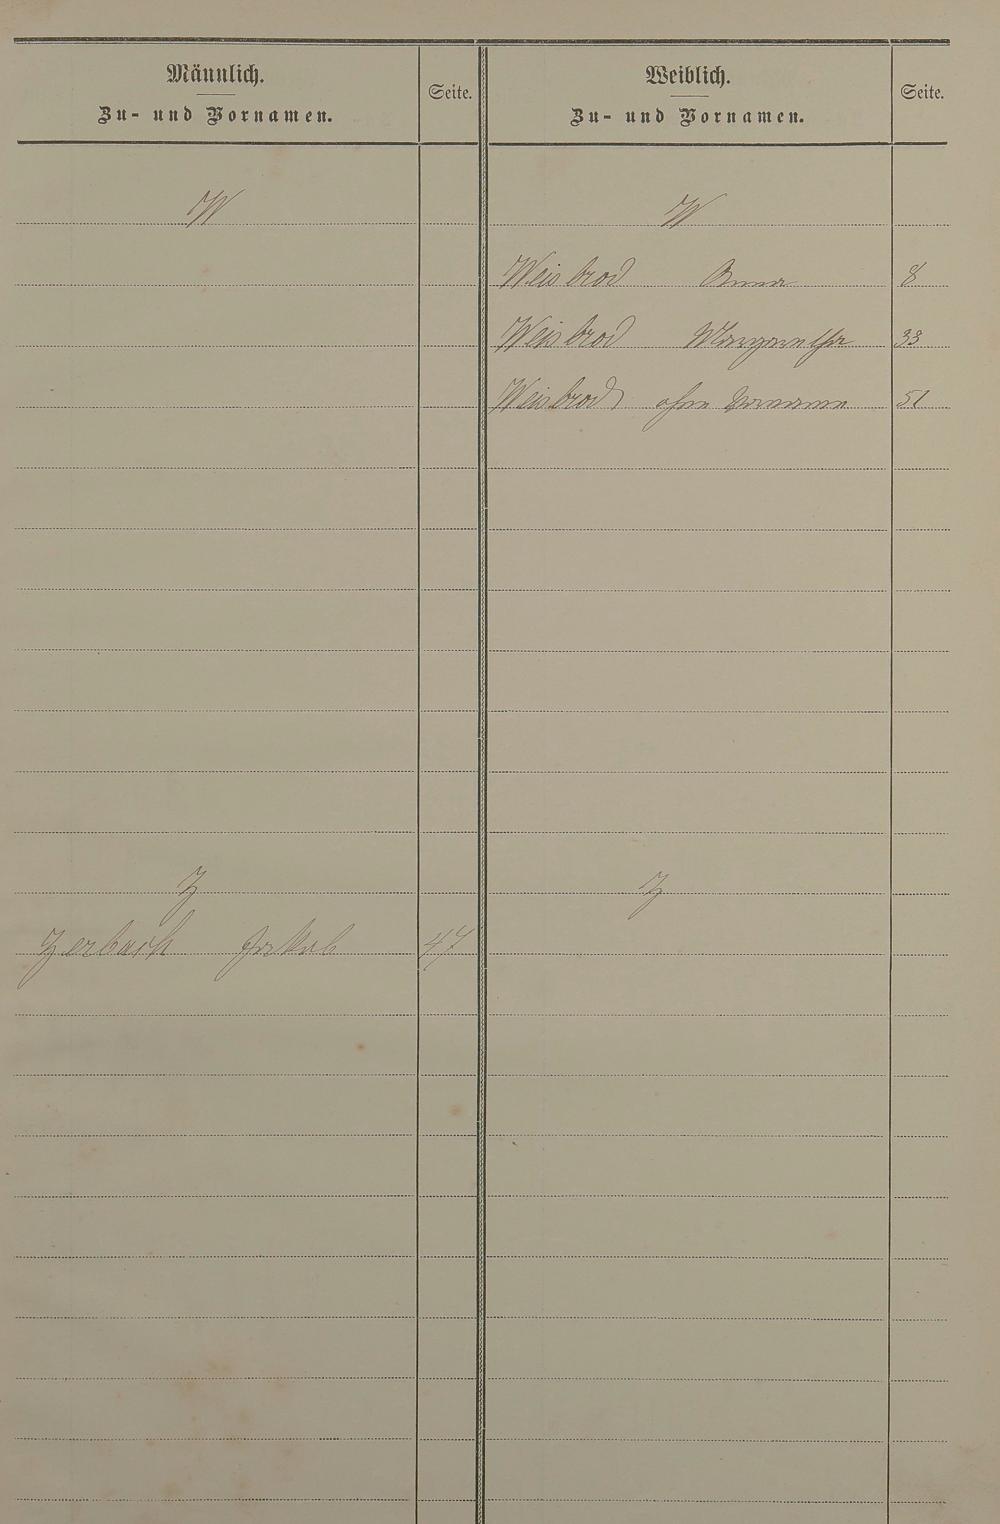 Männlich.
Zu- und Vornamen.
Seite.
Weiblich.
Zu- und Vornamen.
Seite.
W
W
Weisbrod Anna 8
Weisbrod Margaretha 33
Weisbrod ohne Vorname 51
Z
Z
Zerbach Jakob 47